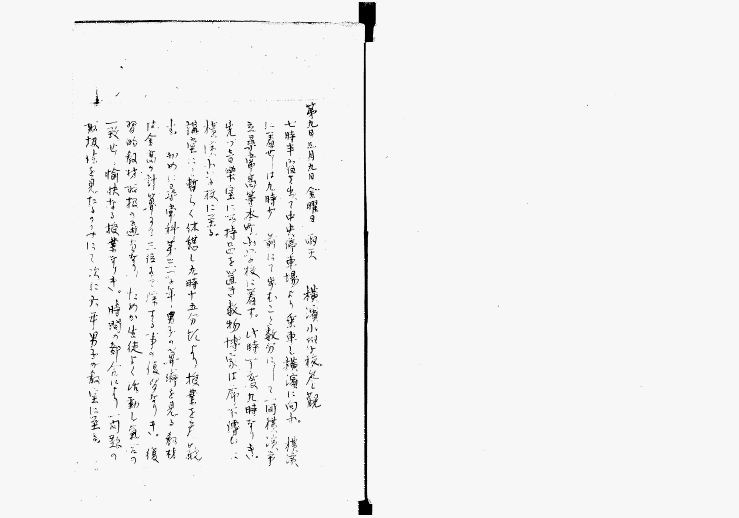 第九日 三月九日 金曜日 雨天 横濱小学校参観
七時半宿を出で中央停車場より乗車し横濱に向ふ。横濱
に着せしは九時少し前にて歩むこと数分にして一同横濱市
立尋常高等本町小学校に着す。此時丁度九時なりき。
先づ音楽室に所持品を置き
横濱小学校に至る。
講堂にて暫らく休憩し九時十五分頃より授業を参観
す。初めに尋常科第三学年男子の算術を見る教材
は金高の計算にて三位まで 事の復分なりき。復
習的教材 ためか生徒よく活動し気 の
一致せし愉快なる授業なりき。時間の都合により一問題の
取扱法を見たるのみにて次に六年男子の教室に至る。